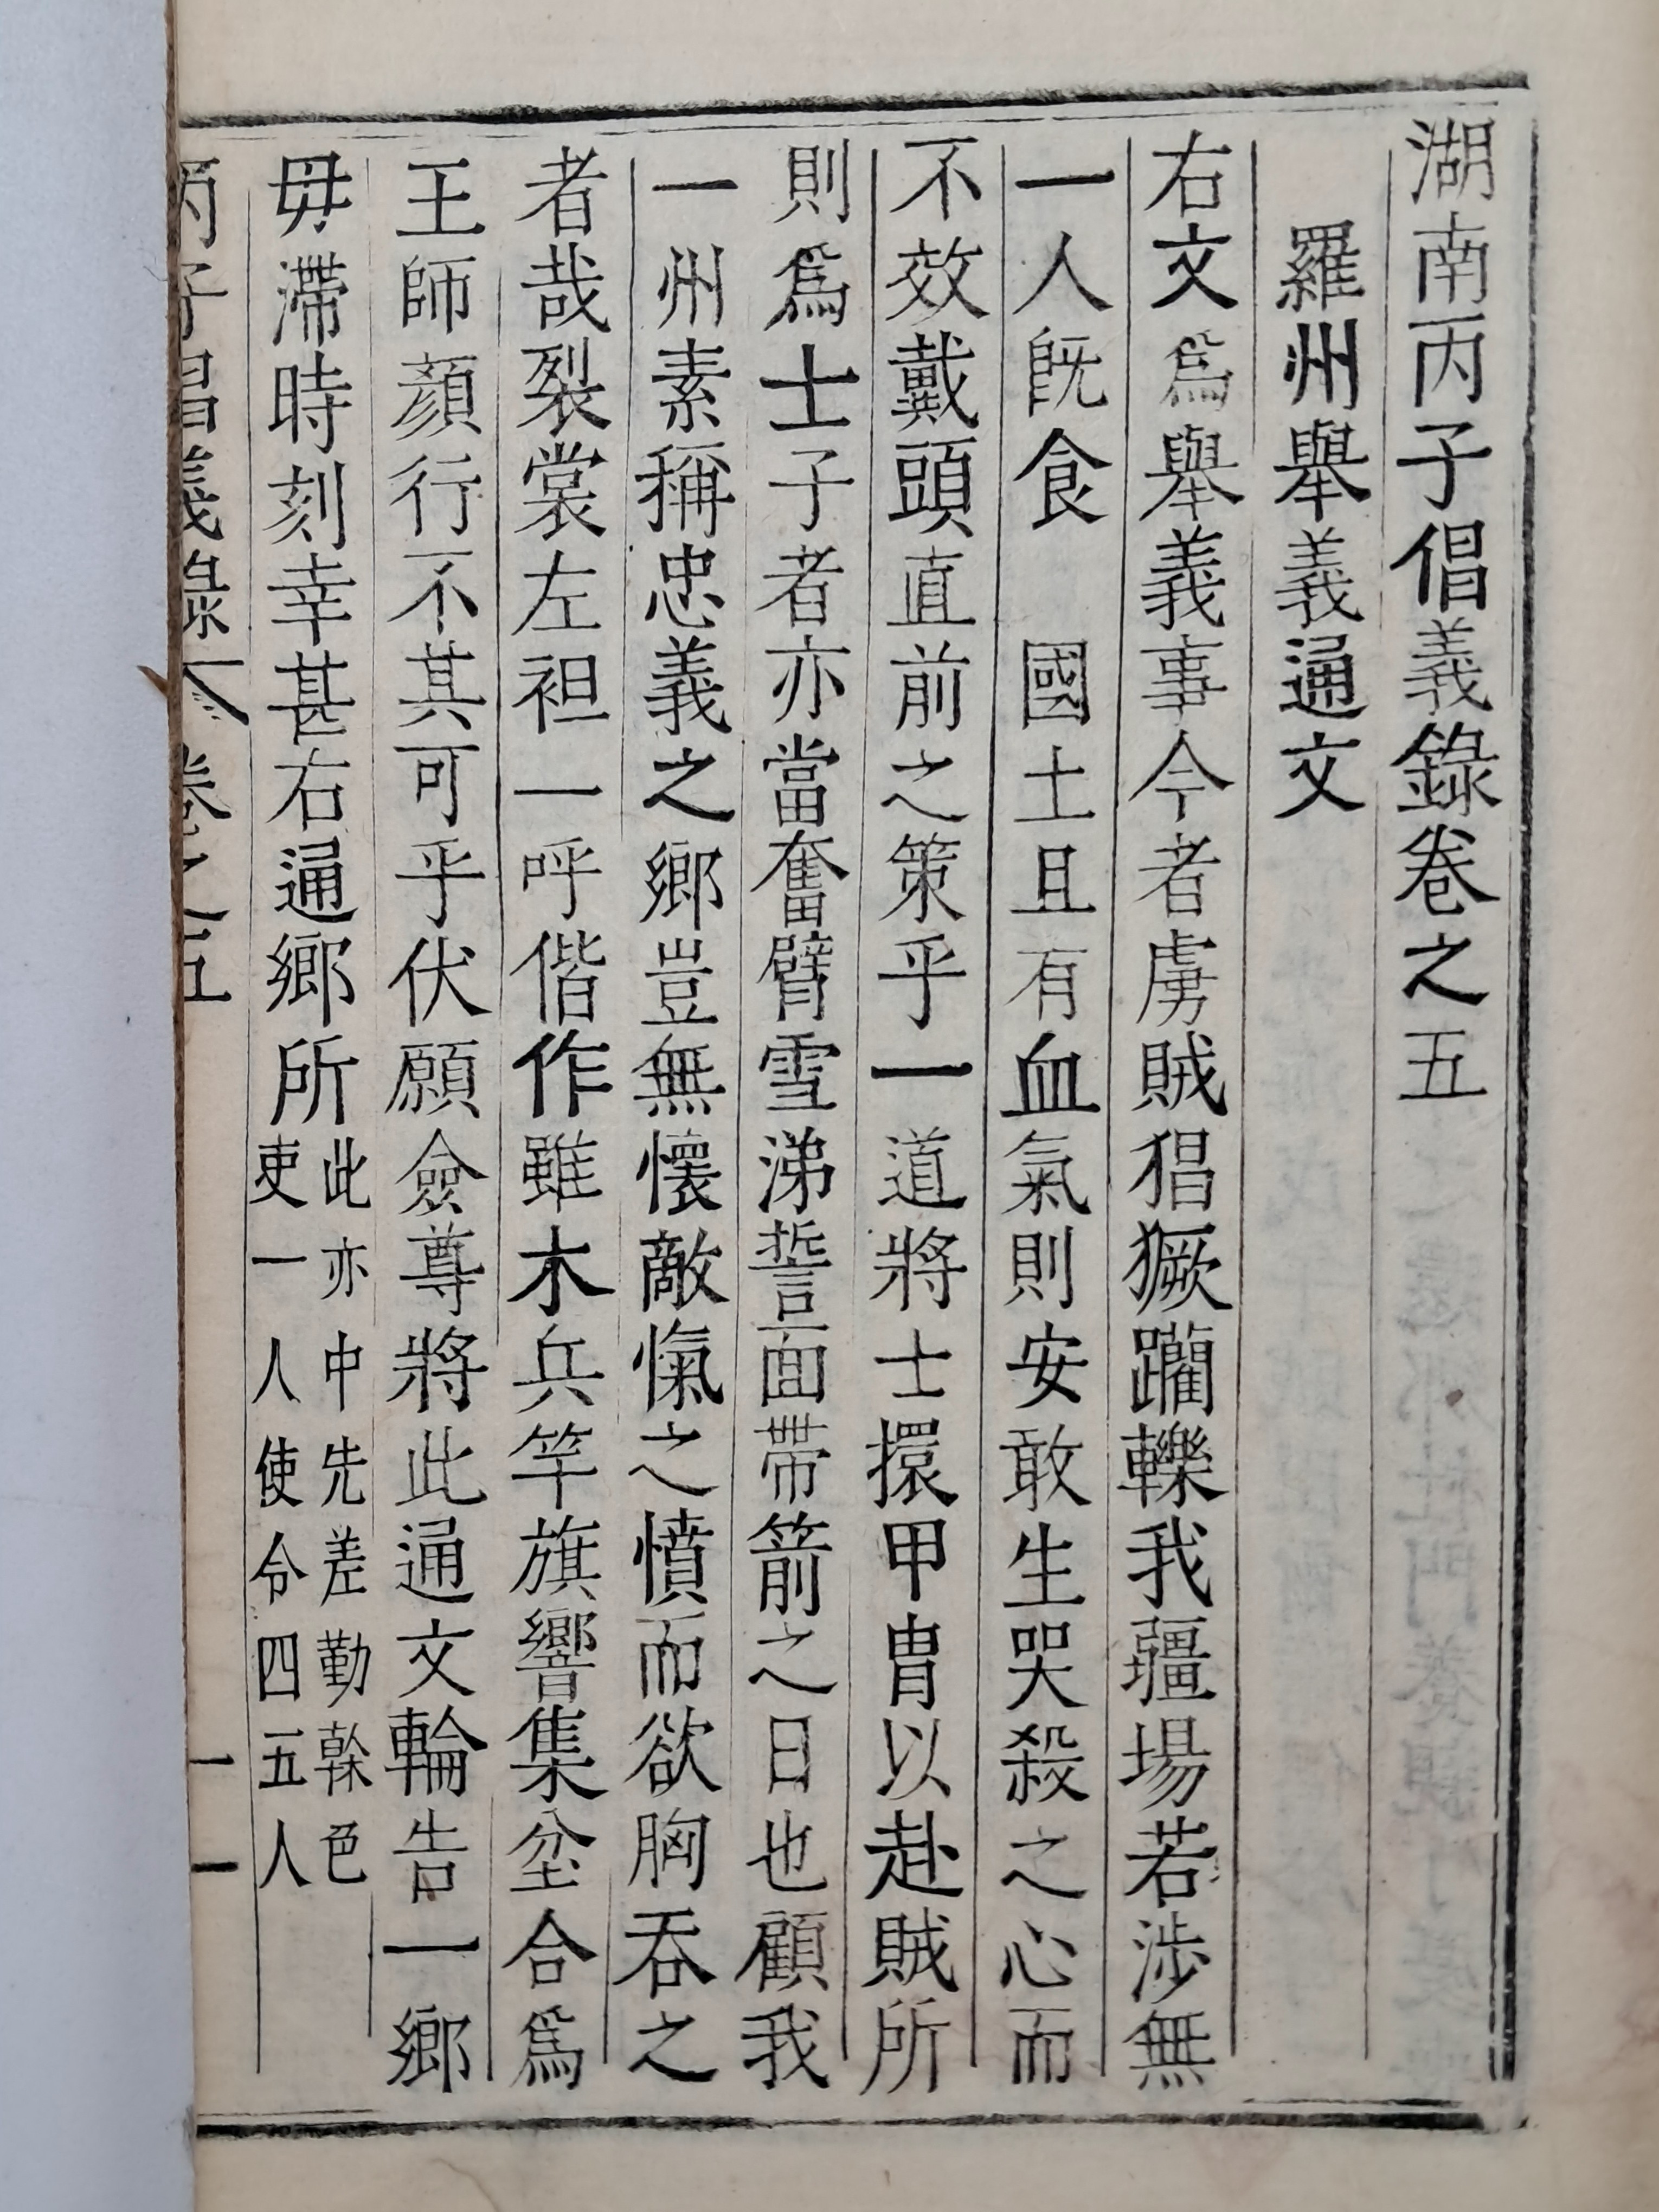 湖南丙子倡義錄卷之五
羅州舉義通文
右文爲舉義事今者虜賊猖獗躪轢我疆場若涉無
一人既食　國土且有血氣則安敢生哭殺之心而
不效戴頭直前之策乎一道將士擐甲胄以赴賊所
則爲士子者亦當奮臂雪涕誓面帶箭之日也顧我
一州素稱忠義之鄉豈無懷敵愾之憤而欲胸吞之
者哉裂裳左袒一呼偕作雖木兵竿旗響集坌合爲
王師顏行不其可乎伏願僉尊將此通文輪告一鄉
毋滯時刻幸甚右通鄉所
此亦中先差勤幹色
吏一人使令四五人
丙子倡義錄 卷之五 一